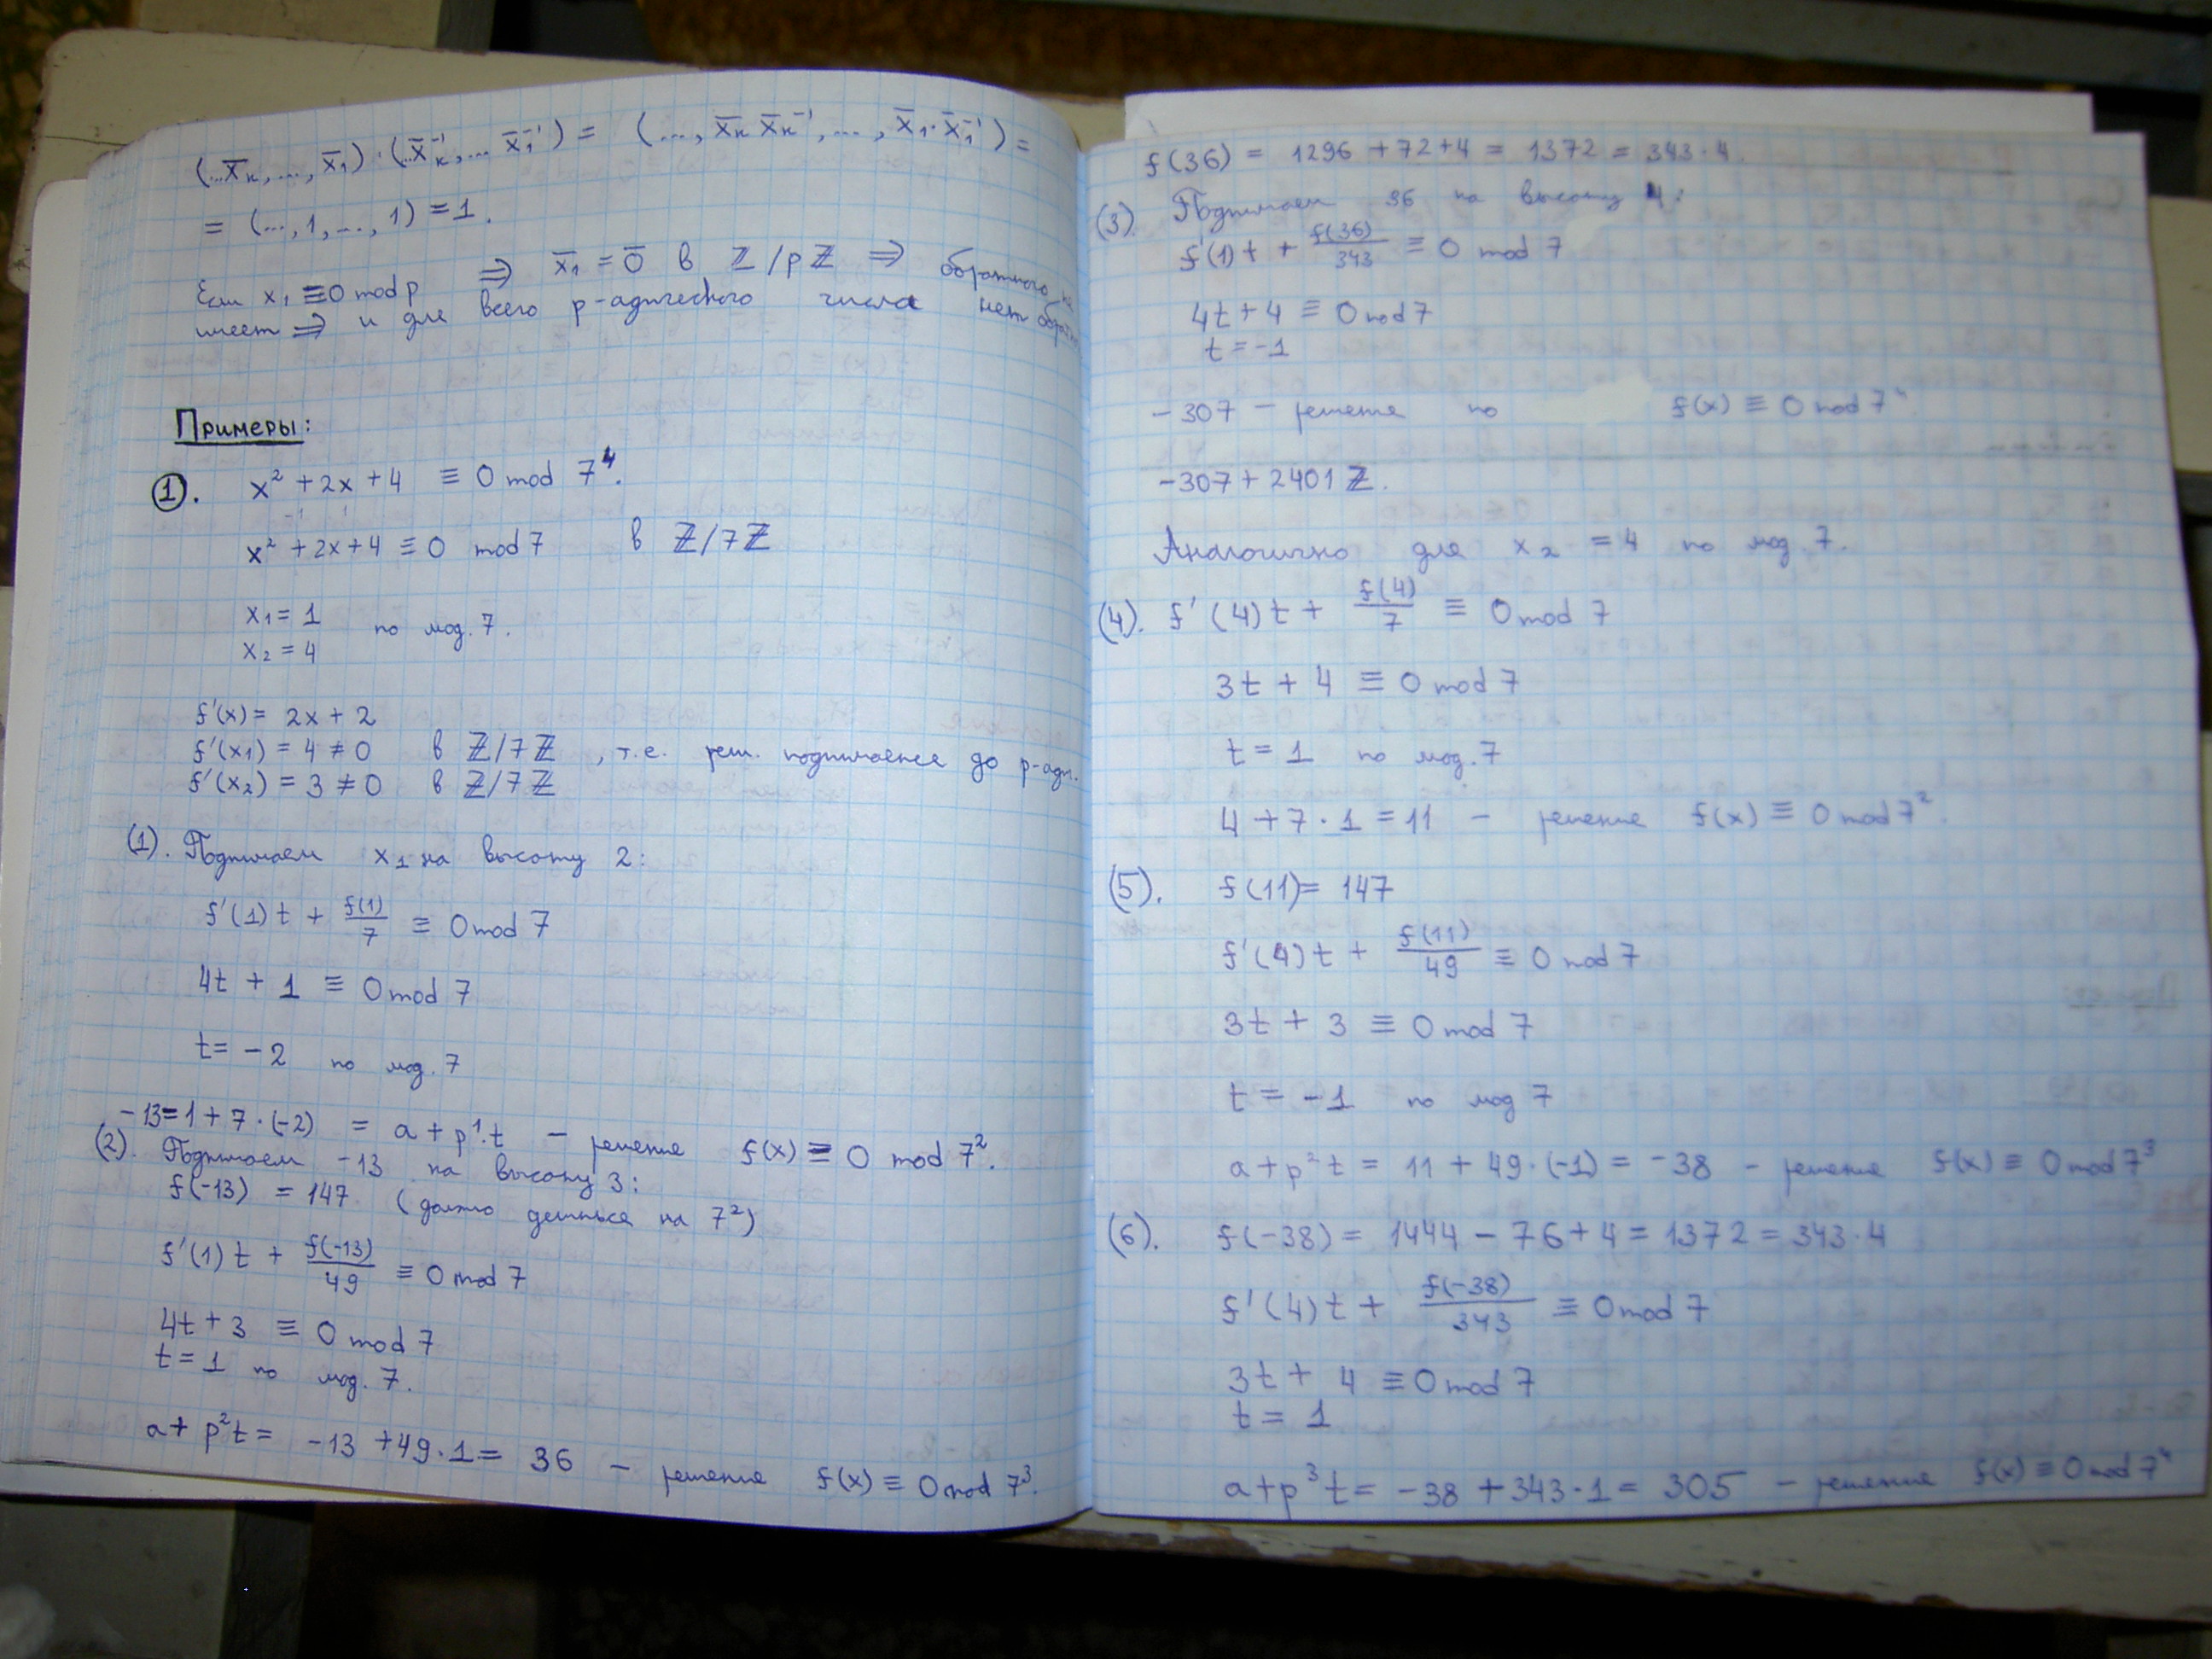 (...x̄ₖ, ..., x̄₁) · (...x̄ₖ⁻¹, ... x̄₁⁻¹) = (..., x̄ₖ x̄ₖ⁻¹, ..., x̄₁ · x̄₁⁻¹) =
= (..., 1, ..., 1) = 1.
Если x₁ ≡ 0 mod p ⇒ x̄₁ = 0̄ в ℤ/pℤ ⇒ обратного не
имеет ⇒ и для всего p-адического числа нет
Примеры:
①. x² + 2x + 4 ≡ 0 mod 7⁴.
-1 1
x² + 2x + 4 ≡ 0 mod 7 в ℤ/7ℤ
x₁ = 1
x₂ = 4 по мод. 7.
f'(x) = 2x + 2
f'(x₁) = 4 ≠ 0 в ℤ/7ℤ, т.е. реш. поднимается до p-адич.
f'(x₂) = 3 ≠ 0 в ℤ/7ℤ
(1). Поднимаем x₁ на высоту 2:
f'(1)t + f(1)/7 ≡ 0 mod 7
4t + 1 ≡ 0 mod 7
t = -2 по мод. 7
-13 = 1 + 7 · (-2) = a + p¹·t — решение f(x) ≡ 0 mod 7².
(2). Поднимаем -13 на высоту 3:
f(-13) = 147 (должно делиться на 7²)
f'(1)t + f(-13)/49 ≡ 0 mod 7
4t + 3 ≡ 0 mod 7
t = 1 по мод. 7.
a + p²t = -13 + 49·1 = 36 — решение f(x) ≡ 0 mod 7³.
f(36) = 1296 + 72 + 4 = 1372 = 343·4.
(3). Поднимаем 36 на высоту 4:
f'(1)t + f(36)/343 ≡ 0 mod 7
4t + 4 ≡ 0 mod 7
t = -1
-307 — решение по f(x) ≡ 0 mod 7⁴
-307 + 2401ℤ.
Аналогично для x₂ = 4 по мод. 7.
(4). f'(4)t + f(4)/7 ≡ 0 mod 7
3t + 4 ≡ 0 mod 7
t = 1 по мод. 7
4 + 7·1 = 11 — решение f(x) ≡ 0 mod 7².
(5). f(11) = 147
f'(4)t + f(11)/49 ≡ 0 mod 7
3t + 3 ≡ 0 mod 7
t = -1 по мод 7
a + p²t = 11 + 49·(-1) = -38 — решение f(x) ≡ 0 mod 7³
(6). f(-38) = 1444 - 76 + 4 = 1372 = 343·4
f'(4)t + f(-38)/343 ≡ 0 mod 7
3t + 4 ≡ 0 mod 7
t = 1
a + p³t = -38 + 343·1 = 305 — решение f(x) ≡ 0 mod 7⁴